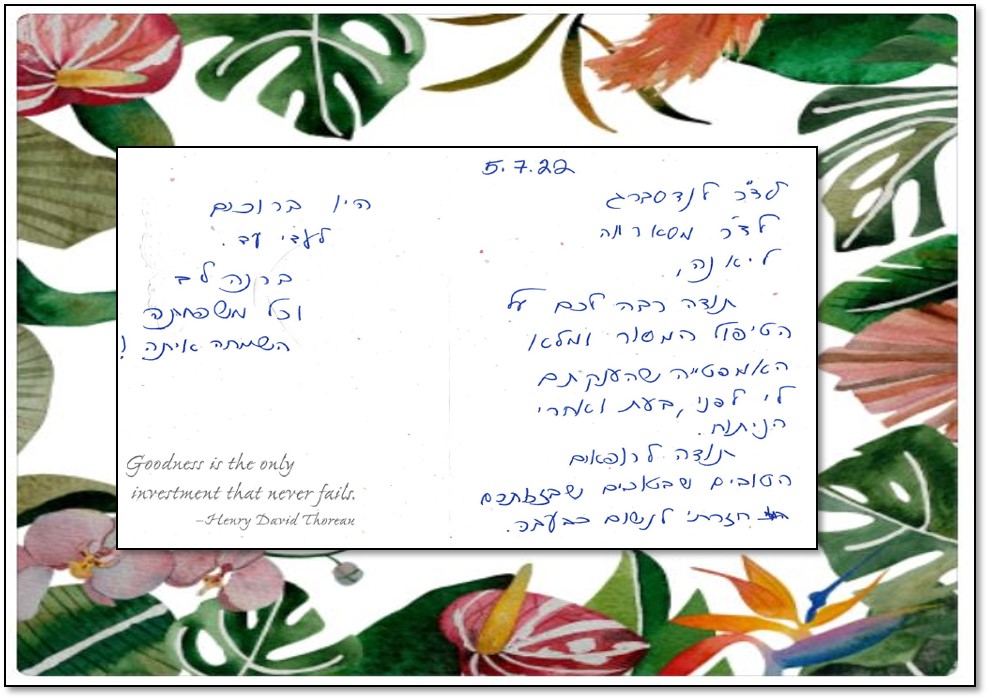 5.7.22
לד"ר לנדסברג
לד"ר מסארווה
ליאנה,
תודה רבה לכם על
הטיפול המסור ומלא
האמפטייה שהענקתם
לי לפני, בעת ואחרי
הניתוח.
תודה לרופאים
הטובים שבזכותכם
חזרתי לנשום כבעבר.
היו ברוכים
לעדי עד.
ברנה לב
וכל משפחתה
השמחה איתה !
Goodness is the only
investment that never fails.
–Henry David Thoreau